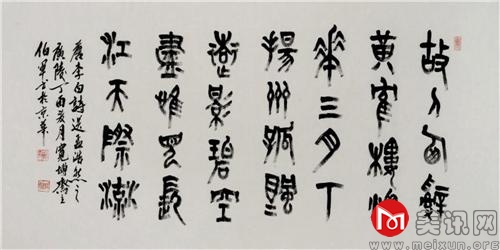 故人西辭
黄鶴樓烟
華三月下
揚州孤颿
遠影碧空
盡惟見長
江天際流
唐李白詩送孟浩然之
廣陵丁酉亥月寬坤齋主
伯軍书於京華
美讯网
www.meixun.org